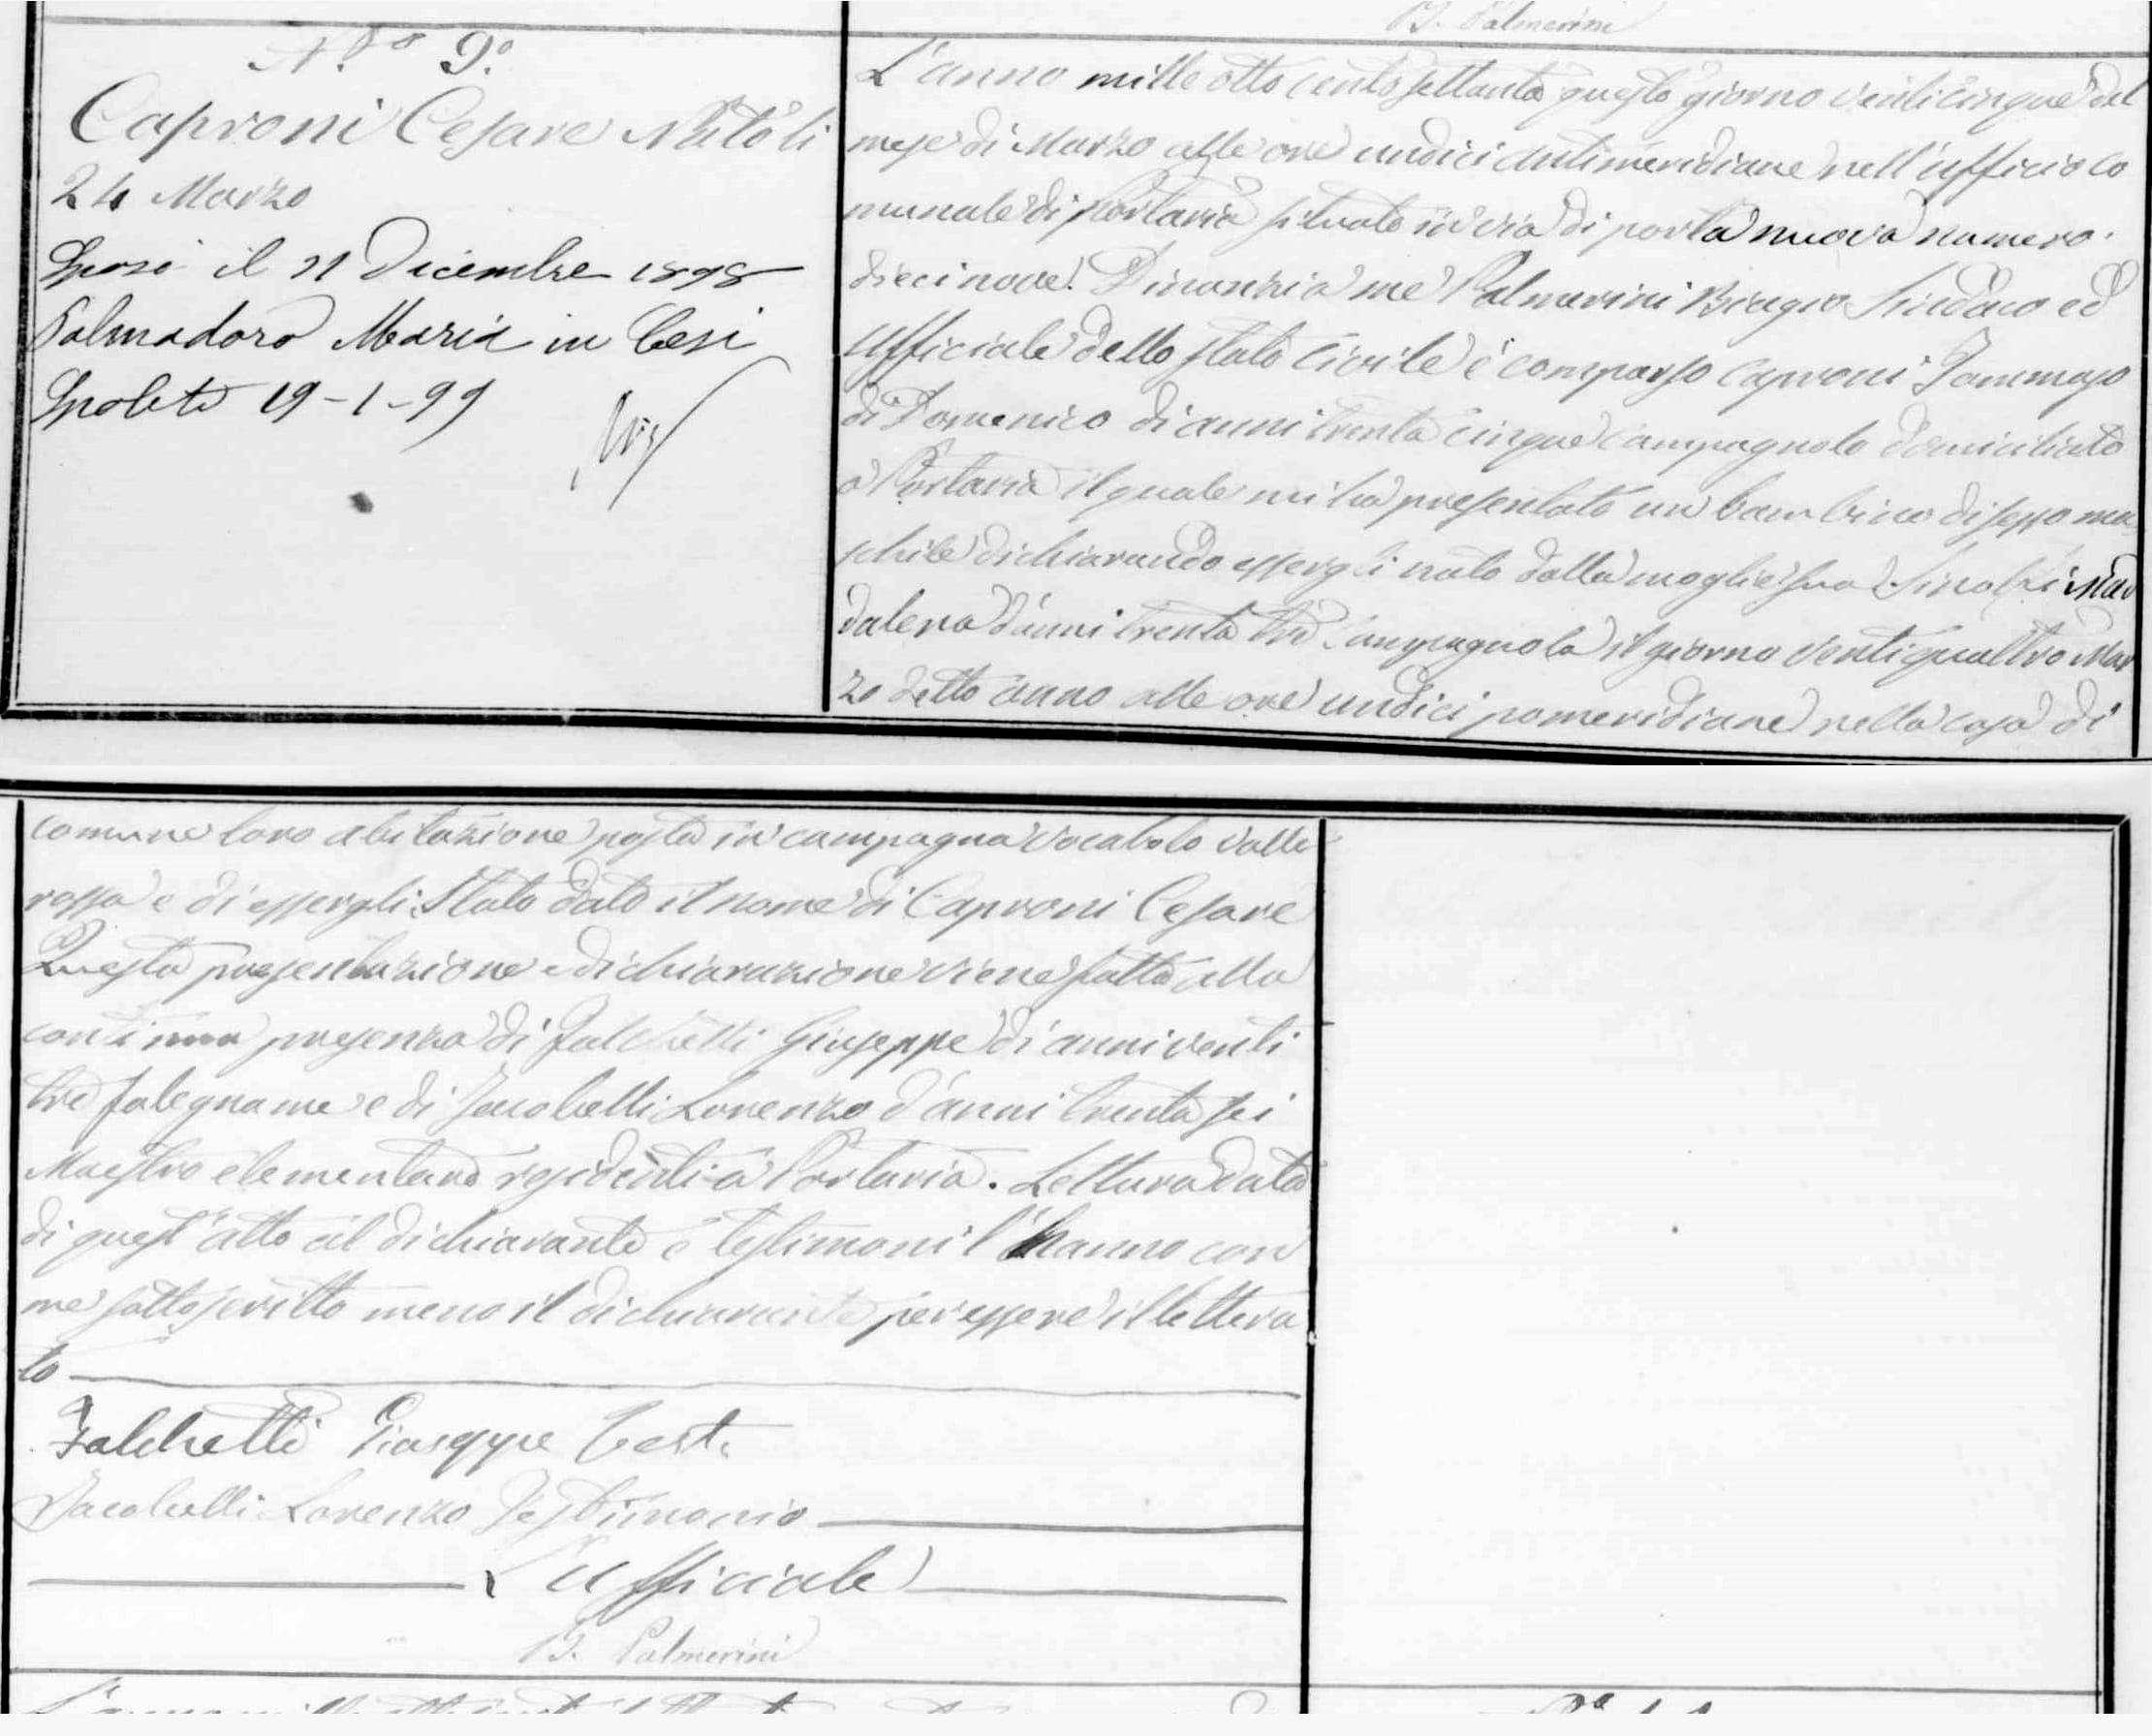 B. Palmerini
N.ro 9.o
Caproni Cesare Nato li
24 Marzo
Sposò il 21 Dicembre 1898
Palmadoro Maria in Cesi
Spoleto 19-1-99
L'anno mille otto cento settanta questo giorno venticinque del
mese di Marzo alle ore undici antimeridiane nell'ufficio co
munale di Portaria situato in via di porta nuova numero
diecinove. Dinanzi a me Palmerini Biagio Sindaco ed
Ufficiale dello stato Civile è comparso Caproni Tommaso
di Domenico di anni trenta cinque Campagnolo domiciliato
a Portaria il quale mi ha presentato un bambino di sesso ma
schile dichiarando essergli nato dalla moglie sua Mad
dalena d'anni trenta tre Campagnola il giorno venti quattro Mar
zo detto anno alle ore undici pomeridiane nella casa di
comune loro abitazione posta in campagna vocabolo valle
rossa e di essergli Stato dato il nome di Caproni Cesare
Questa presentazione e dichiarazione viene fatta alla
continua presenza di Falchetti Giuseppe di anni venti
tre falegname e di Jacobelli Lorenzo d'anni trenta sei
Maestro elementare residenti a Portaria. Lettura data
di quest'atto al dichiarante e testimoni l'hanno con
me sottoscritto meno il dichiarante per essere illettera
to
Falchetti Giuseppe Test.
Jacobelli Lorenzo Testimonio
L'ufficiale
B. Palmerini